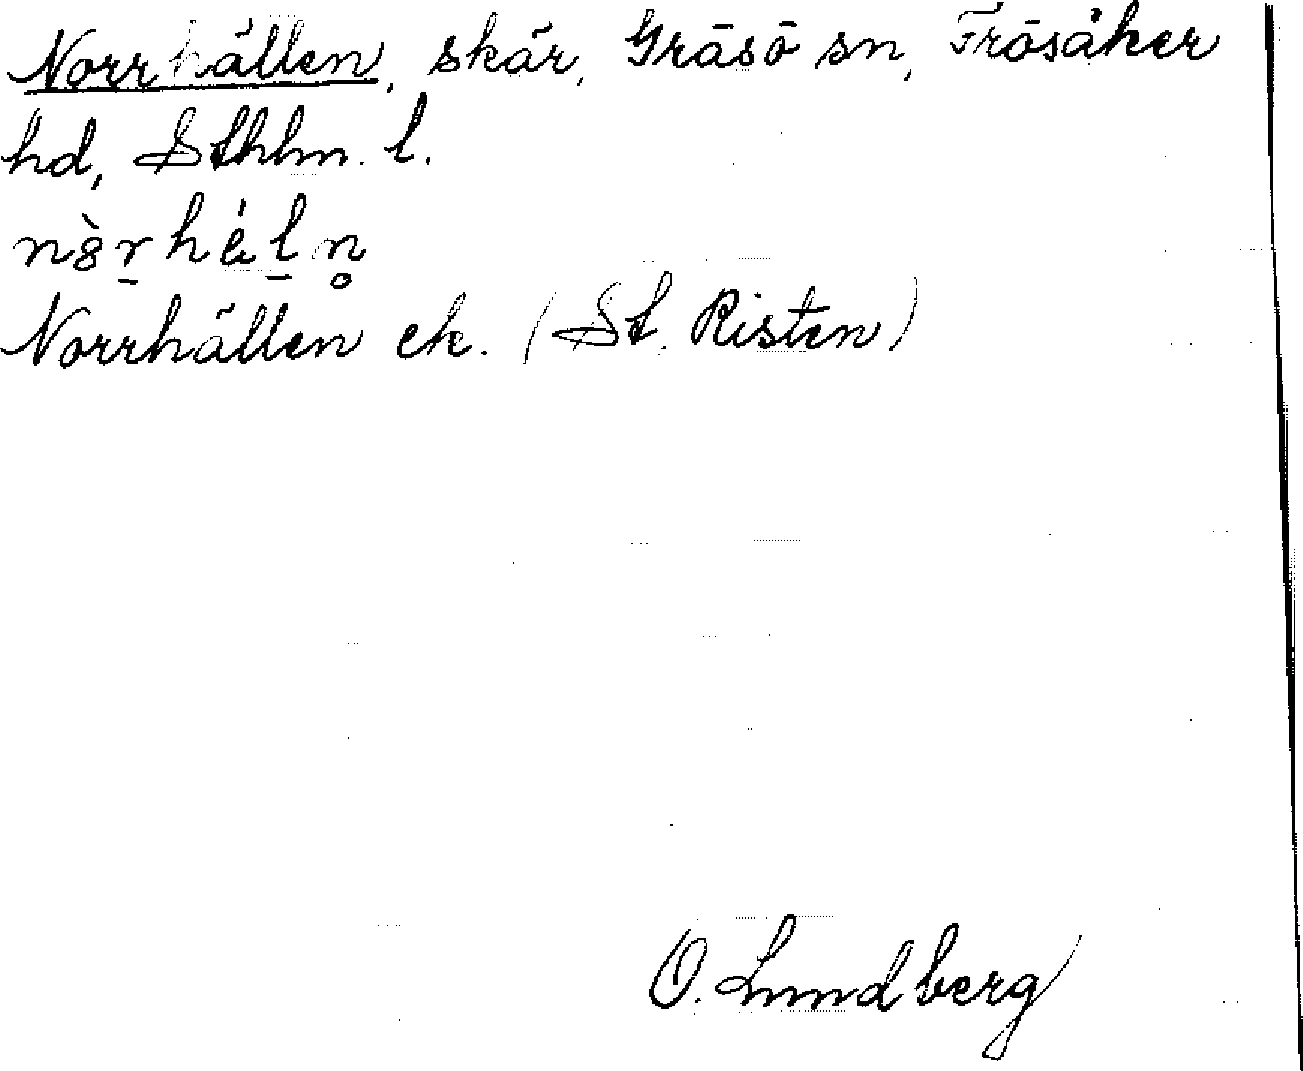 Norrhällen, skär, Gräsö sn, Frösåker
hd, Sthlm. l.
Norrhällen ek. (St. Risten)
O. Lundberg